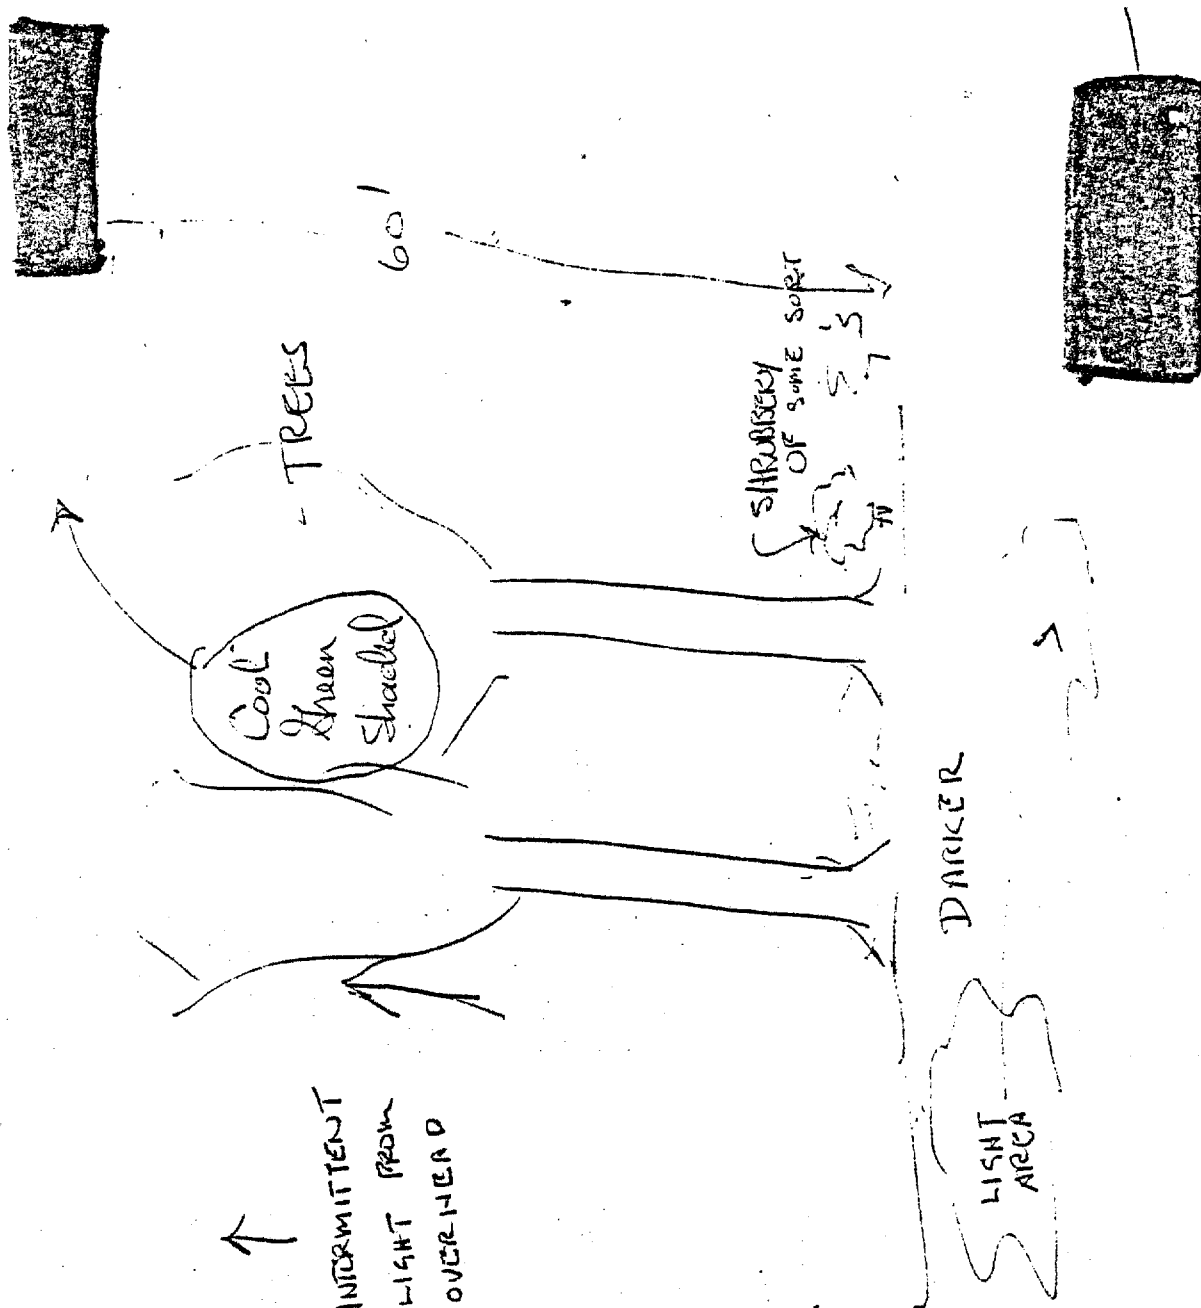 INTERMITTENT
LIGHT FROM
OVERHEAD
Cool
Green
Shaded
- TREES
60'
SHRUBBERY
OF SOME SORT
5'
DARKER
LIGHT
AREA